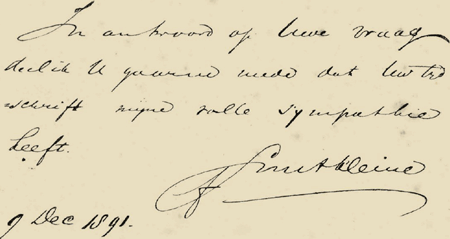 In antwoord op Uwe vraag
deel ik U gaarne mede dat Uw tijd
=schrift mijne volle sympathie
heeft.
9 Dec 1891.